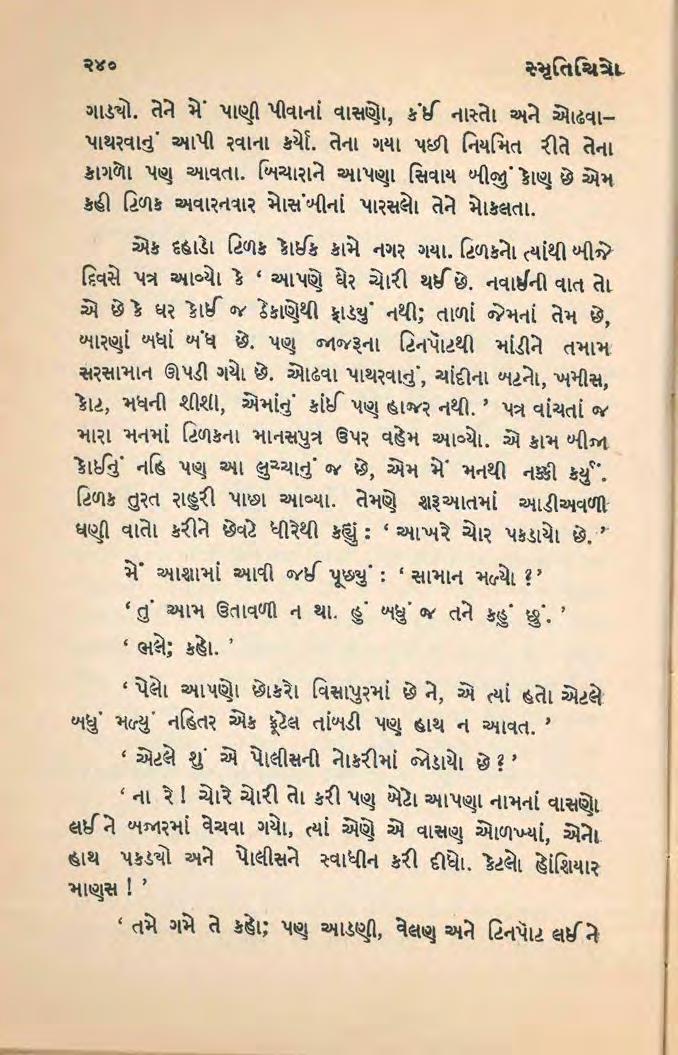 ૨૪૦
સ્મૃતિચિત્રો
ગાડયો. તેને મેં પાણી પીવાનાં વાસણો, કંઈ નાસ્તો અને ઓઢવા–
પાથરવાનું આપી રવાના કર્યો. તેના ગયા પછી નિયમિત રીતે તેના
કાગળો પણ આવતા. બિચારાને આપણા સિવાય બીજું કોણ છે એમ
કહી ટિળક અવારનવાર મોસંબીનાં પારસલો તેને મોકલતા.
એક દહાડો ટિળક કોઈક કામે નગર ગયા. ટિળકનો ત્યાંથી બીજે
દિવસે પત્ર આવ્યો કે ‘ આપણે ઘેર ચોરી થઈ છે. નવાઈની વાત તો
એ છે કે ઘર કોઈ જ ઠેકાણેથી ફાડયું નથી; તાળાં જેમનાં તેમ છે,
બારણાં બધાં બંધ છે. પણ જાજરૂના ટિનપૉટથી માંડીને તમામ
સરસામાન ઊપડી ગયો છે. ઓઢવા પાથરવાનું, ચાંદીના બટનો, ખમીસ,
કોટ, મધની શીશી, એમાંનું કાંઈ પણ હાજર નથી. ’ પત્ર વાંચતાં જ
મારા મનમાં ટિળકના માનસપુત્ર ઉપર વહેમ આવ્યો. એ કામ બીજા
કોઈનું નહિ પણ આ લુચ્ચાનું જ છે, એમ મેં મનથી નક્કી કર્યું.
ટિળક તુરત રાહુરી પાછા આવ્યા. તેમણે શરૂઆતમાં આડીઅવળી
ઘણી વાતો કરીને છેવટે ધીરેથી કહ્યું : ‘ આખરે ચોર પકડાયો છે. ’
મેં આશામાં આવી જઈ પૂછયું : ‘ સામાન મળ્યો ? ’
‘ તું આમ ઉતાવળી ન થા. હું બધું જ તને કહું છું. ’
‘ ભલે; કહો. ’
‘ પેલો આપણો છોકરો વિસાપુરમાં છે ને, એ ત્યાં હતો એટલે
બધું મળ્યું નહિતર એક ફૂટેલ તાંબડી પણ હાથ ન આવત. ’
‘ એટલે શું એ પોલીસની નોકરીમાં જોડાયો છે ? ’
‘ ના રે ! ચોરે ચોરી તો કરી પણ બેટો આપણા નામનાં વાસણો
લઈ ને બજારમાં વેચવા ગયો, ત્યાં એણે એ વાસણ ઓળખ્યાં, એનો
હાથ પકડયો અને પોલીસને સ્વાધીન કરી દીધો. કેટલો હોંશિયાર
માણસ ! ’
‘ તમે ગમે તે કહો; પણ આડણી, વેલણ અને ટિનપૉટ લઈ ને